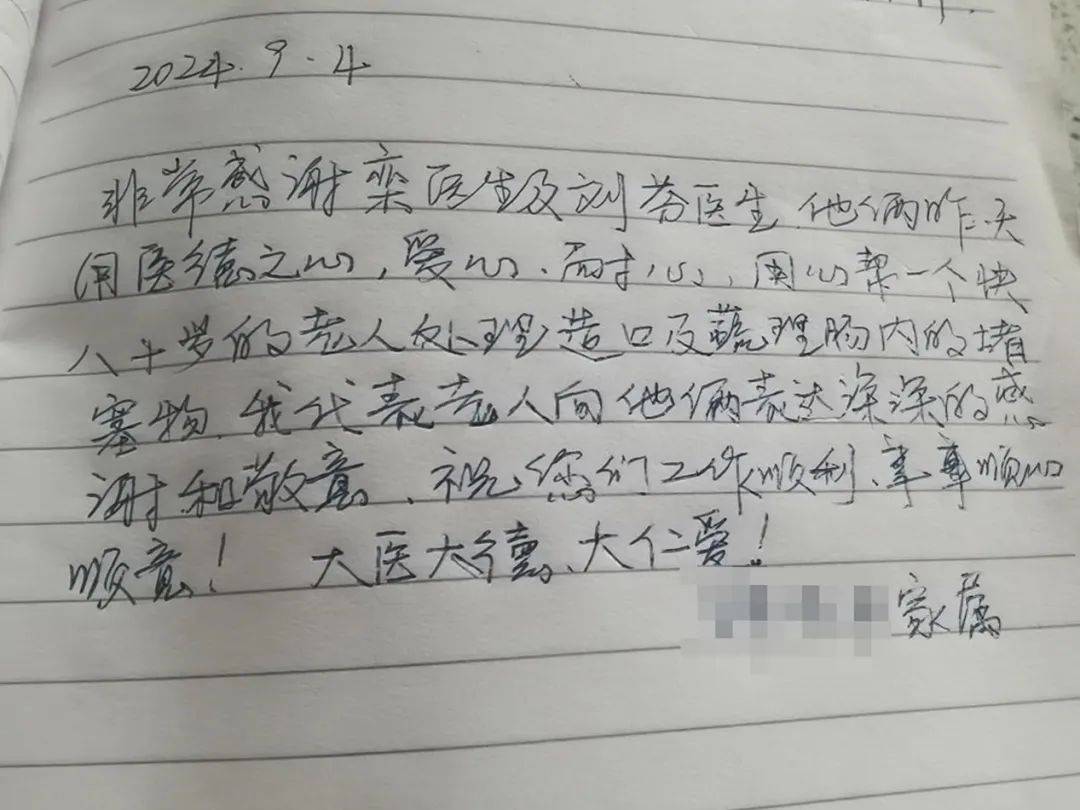 2024.9.4
非常感谢栾医生及刘荟医生.他俩昨天
用医德之心,爱心、耐心,用心帮一个快
八十岁的老人处理造口及疏理肠内的堵
塞物.我代表老人向他俩表达深深的感
谢和敬意、祝您们工作顺利、事事顺心
顺意!大医大德、大仁爱!
家属